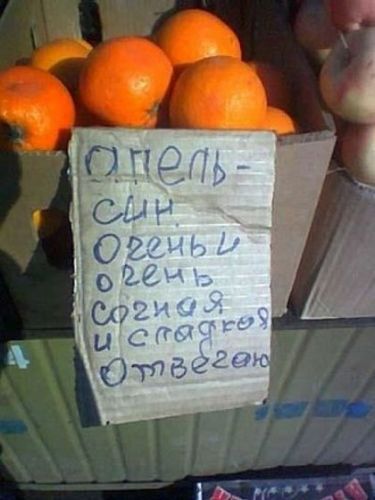 апель-
син
очень и
очень
сочная
и сладкая
отвечаю